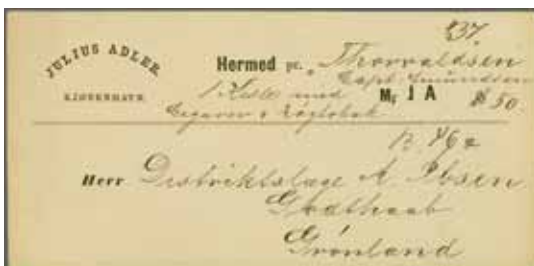 237
JULIUS ADLER
KJØBENHAVN.
Hermed pr. "Thorvaldsen
Capt. Amundsen
1 Kasse med Mk J A # 50
Cigarer & Røgtobak
Herr Distriktslæge A. Ibsen
Godthaab
Grønland